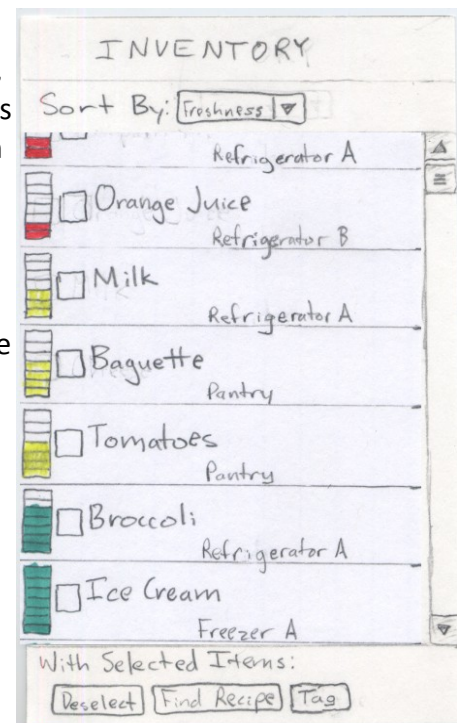 INVENTORY
Sort By: Freshness
Refrigerator A
Orange Juice
Refrigerator B
Milk
Refrigerator A
Baguette
Pantry
Tomatoes
Pantry
Broccoli
Refrigerator A
Ice Cream
Freezer A
With Selected Items:
Deselect Find Recipe Tag